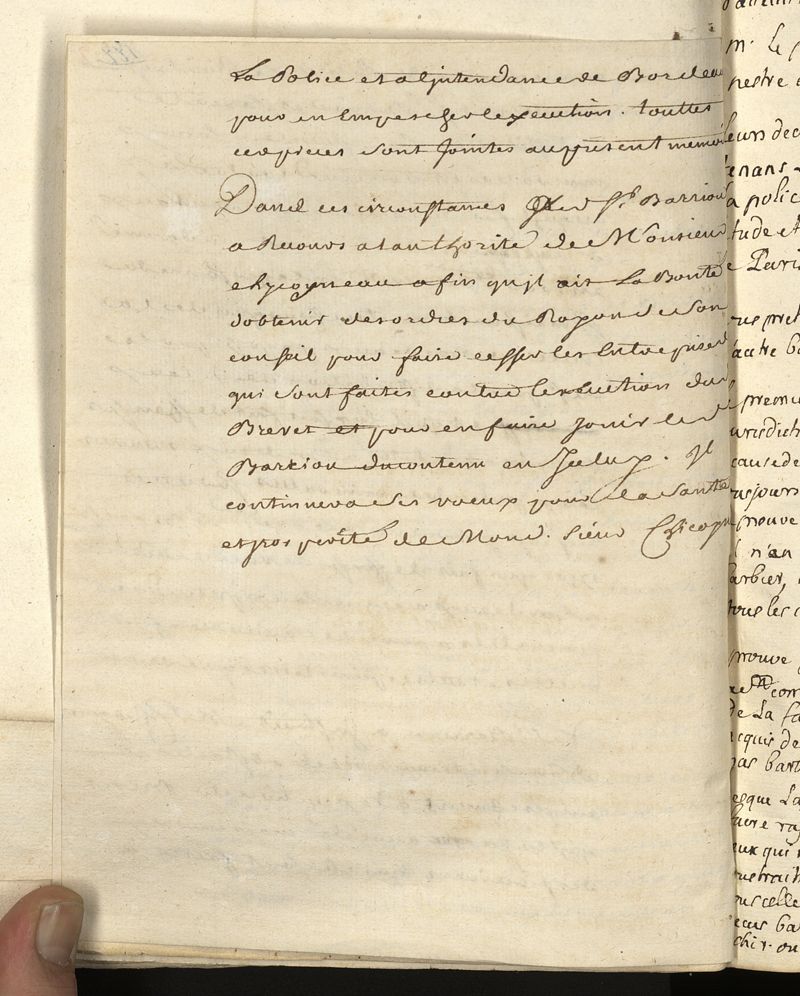 La Police et a Ljntendance de Bordeau
pour en Empescher lexecution. touttes
ces pieces sont Jointes au present memoi
Dans ces circonstances Led Sr. Barriou
a Recours a lauthorité de Monsieur
chycoyneau afin qujl ait La Bonté
dobtenir des ordres du Roy ou de son
conseil pour faire cesser les Entreprises
qui sont faites contre lexecution du
Brevet et pour en faire Jouir led
Barriou du contenu en Jceluy. Jl
continuera ses voeux pour la santé
et prosperité de Monsieur
m. le
pestre
leurs dec
tenans
a polic
tude et
e Paris
autre ba
premie
urisdict
cause de
toujours
prouve
l n'an
arbier,
tous les
prouve
de La fa
acquis de
pas barb
faire ra
eux qui